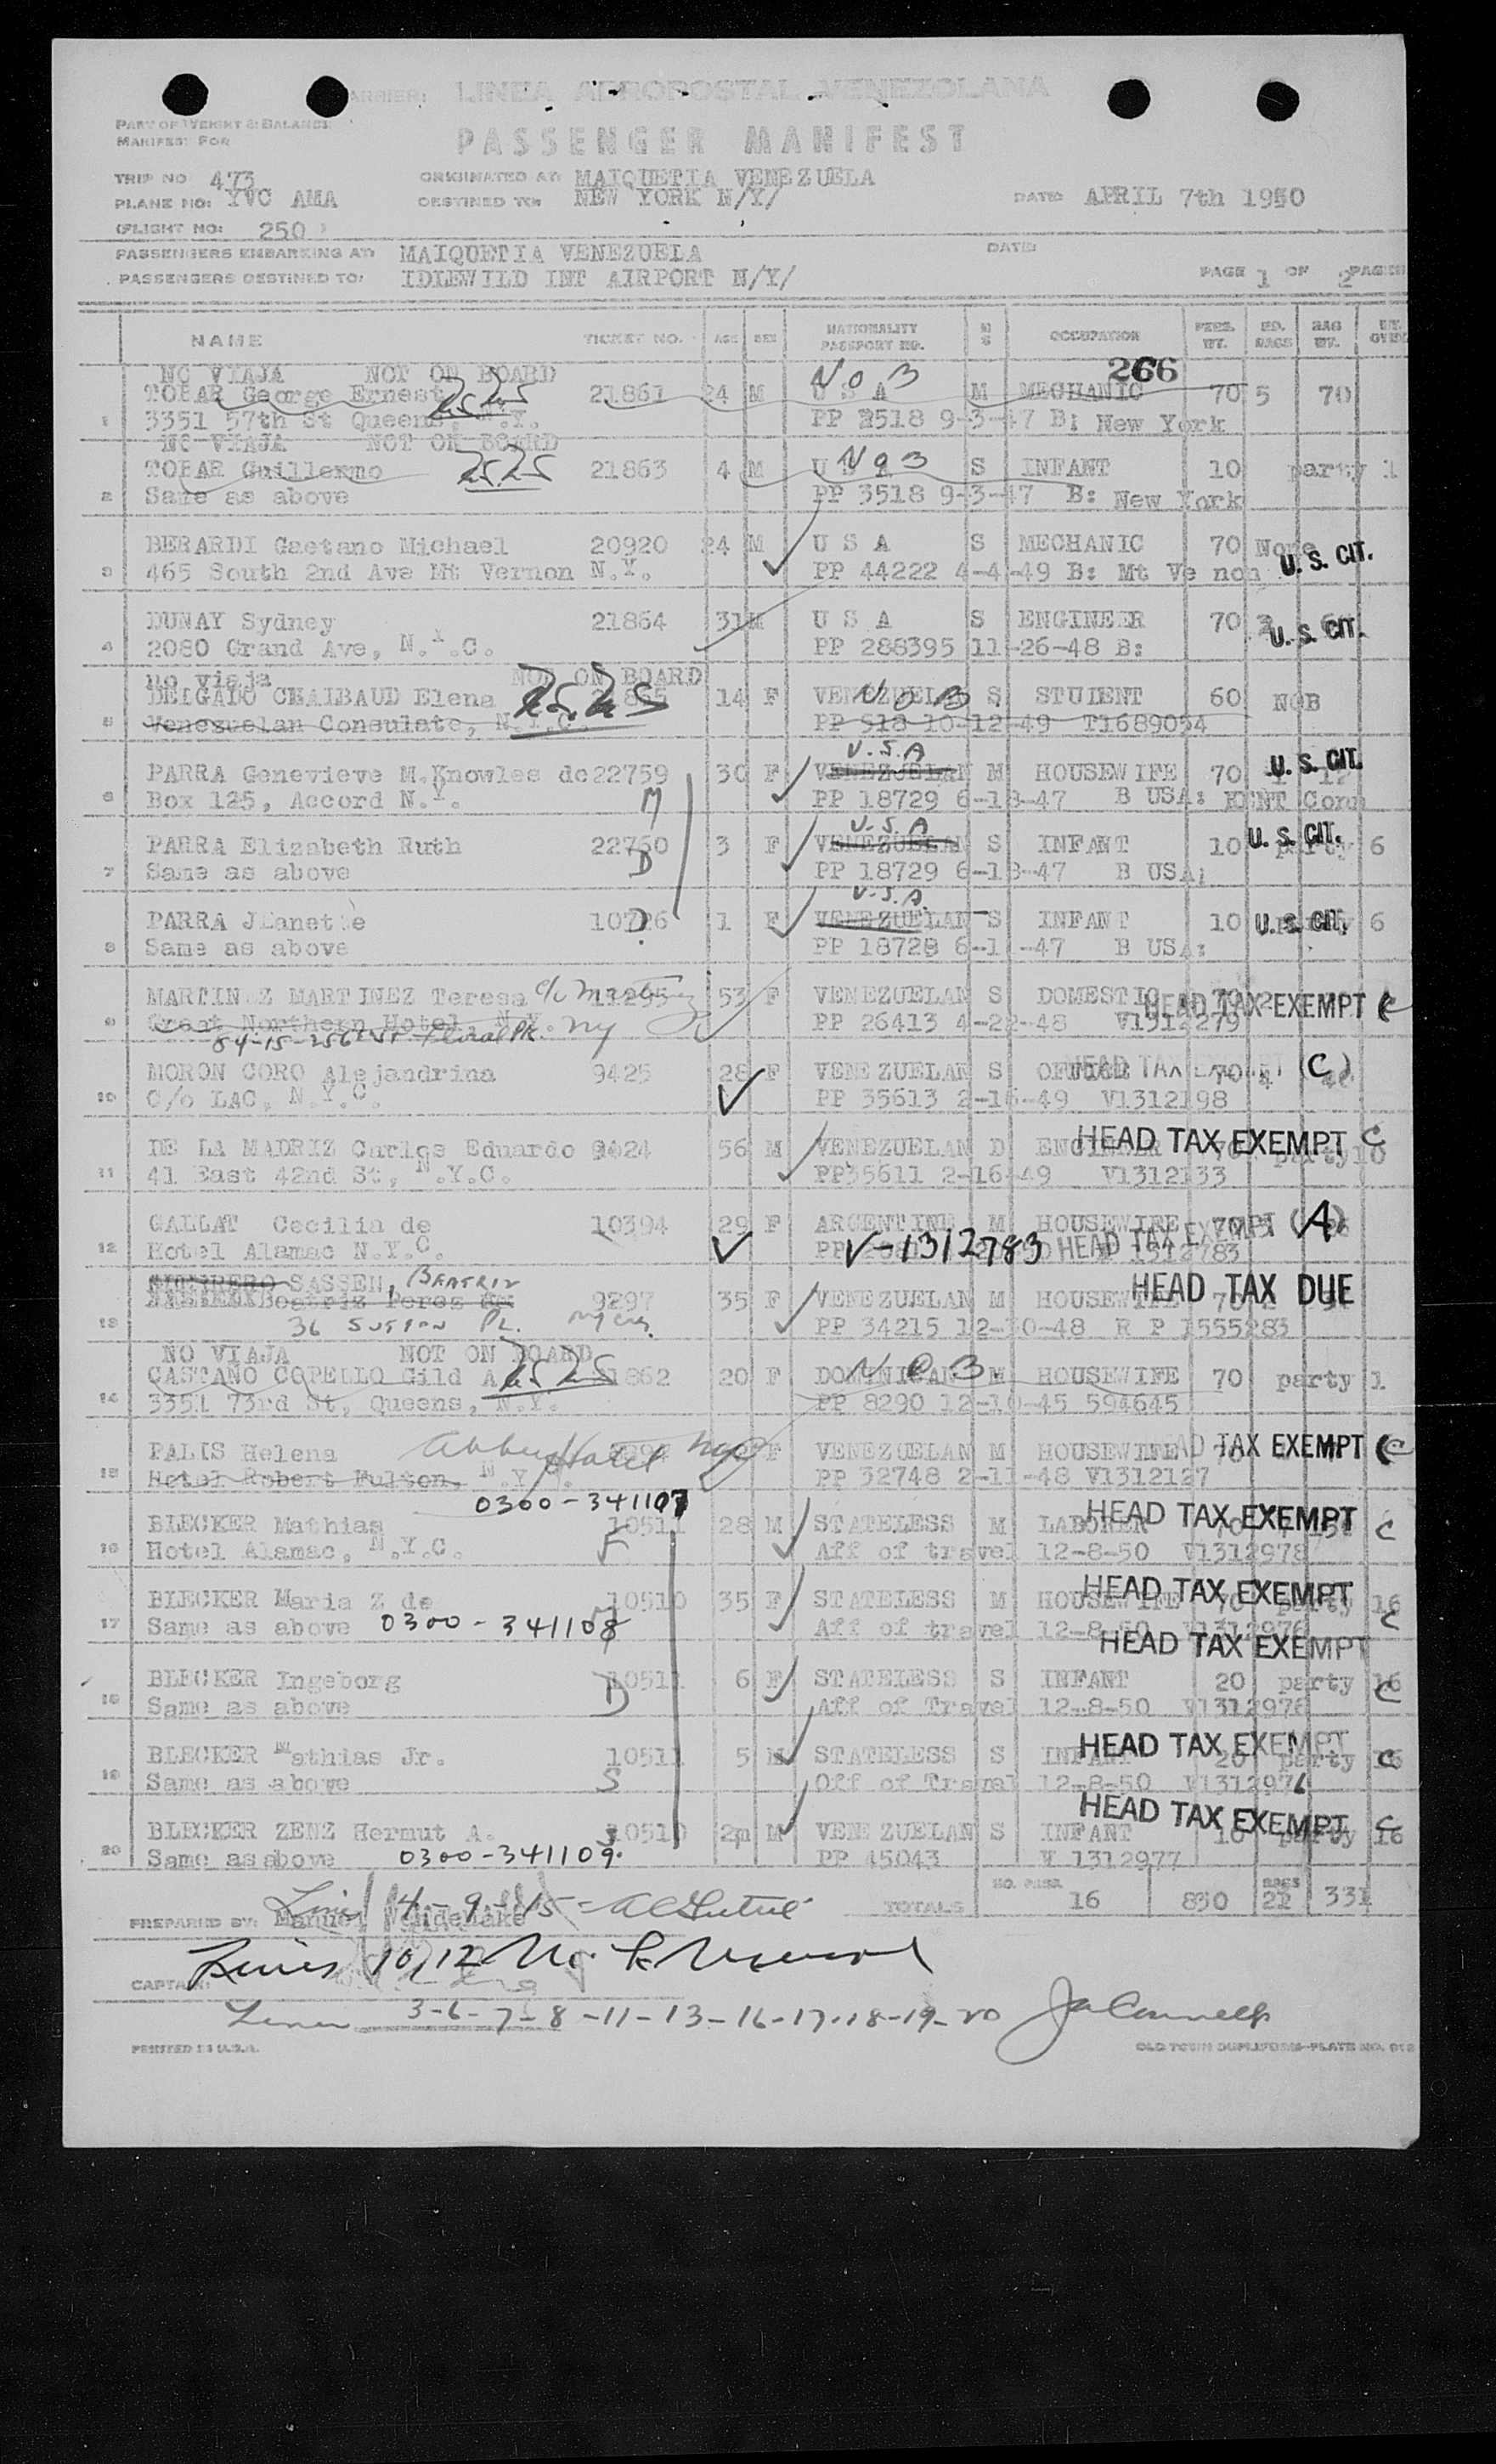 CARRIER: LINEA AEROPOSTAL VENEZOLANA
PART OF WEIGHT & BALANCE
MANIFEST FOR
PASSENGER MANIFEST
TRIP NO. 473 ORIGINATED AT: MAIQUETIA VENEZUELA
PLANE NO: YVC AMA DESTINED TO: NEW YORK N/Y/ DATE: APRIL 7th 1950
(FLIGHT NO: 250)
PASSENGERS EMBARKING AT: MAIQUETIA VENEZUELA DATE:
PASSENGERS DESTINED TO: IDLEWILD INT AIRPORT N/Y/ PAGE 1 OF 2 PAGES
NAME TICKET NO. AGE SEX NATIONALITY PASSPORT NO. M S OCCUPATION PERS. WT. NO. BAGS BAG WT.
266
NO VIAJA NOT ON BOARD
TOBAR George Ernest 2525 21861 24 M U S A NOB M MECHANIC 70 5 70
1 3351 57th St Queens, N.Y. PP 3518 9-3-47 B: New York
NO VIAJA NOT ON BOARD
TOBAR Guillermo 2525 21863 4 M U S A NOB S INFANT 10 party 1
2 Same as above PP 3518 9-3-47 B: New York
BERARDI Gaetano Michael 20920 24 M U S A S MECHANIC 70 None U. S. CIT.
3 465 South 2nd Ave Mt Vernon N.Y. PP 44222 4-4-49 B: Mt Ve non
DUNAY Sydney 21864 31 M U S A S ENGINEER 70 U. S. CIT.
4 2080 Grand Ave, N.Y.C. PP 288395 11-26-48 B:
no viaja NOT ON BOARD
DELGADO CHAIBAUD Elena 2525 21865 14 F VENEZUELAN NOB S STUDENT 60 NOB
5 Venezuelan Consulate, N.Y.C. PP 518 10-12-49 T1689054
U.S.A
PARRA Genevieve M.Knowles de 22759 30 F VENEZUELAN M HOUSEWIFE 70 U. S. CIT.
6 Box 125, Accord N.Y. M PP 18729 6-18-47 B USA: KENT Conn
U.S.A
PARRA Elizabeth Ruth 22760 3 F VENEZUELAN S INFANT 10 party 6 U. S. CIT.
7 Same as above D PP 18729 6-18-47 B USA;
U.S.A.
PARRA Jeanette 10726 1 F VENEZUELAN S INFANT 10 U. S. CIT. 6
8 Same as above D PP 18728 6-1 -47 B USA:
MARTINEZ MARTINEZ Teresa 11295 53 F VENEZUELAN S DOMESTIC 70 2 HEAD TAX EXEMPT C
9 Great Northern Hotel N.Y. PP 26413 4-22-48 V1312279
84-15-256 St Floral Pk. NY
MORON CORO Alejandrina 9425 28 F VENEZUELAN S OFFICE 70 4 HEAD TAX EXEMPT (C)
10 C/o LAC, N.Y.C. PP 35613 2-16-49 V1312198
DE LA MADRIZ Carlos Eduardo 9424 56 M VENEZUELAN D ENGINEER 70 party 10 HEAD TAX EXEMPT C
11 41 East 42nd St, N.Y.C. PP35611 2-16-49 V1312133
GALLAT Cecilia de 10394 29 F ARGENTINE M HOUSEWIFE 70 HEAD TAX EXEMPT (A)
12 Hotel Alamac N.Y.C. V-1312783
SASSEN, BEATRIZ
9297 35 F VENEZUELAN M HOUSEWIFE 70 HEAD TAX DUE
13 36 SUTTON PL. NYC PP 34215 12-10-48 R P 1555283
NO VIAJA NOT ON BOARD
CASTANO COPELLO Gild A 2525 21862 20 F DOMINICAN NOB M HOUSEWIFE 70 party 1
14 3351 73rd St, Queens, N.Y. PP 8290 12-10-45 594645
PALIS Helena Abbey Hotel NYC F VENEZUELAN M HOUSEWIFE HEAD TAX EXEMPT C
15 Hotel Robert Fulton, N.Y. PP 32748 2-11-48 V1312127
0300-341107
BLECKER Mathias 10511 28 M STATELESS M LABORER 70 HEAD TAX EXEMPT C
16 Hotel Alamac, N.Y.C. F Aff of travel 12-8-50 V1312978
BLECKER Maria Z de 10510 35 F STATELESS M HOUSEWIFE 70 party 16 HEAD TAX EXEMPT C
17 Same as above 0300-341108 Aff of travel 12-8-50 V1312976
HEAD TAX EXEMPT
BLECKER Ingeborg 10511 6 F STATELESS S INFANT 20 party 16 C
18 Same as above D Aff of Travel 12-8-50 V1312976
BLECKER Mathias Jr. 10511 5 M STATELESS S INFANT 20 party 16 HEAD TAX EXEMPT C
19 Same as above S Off of Travel 12-8-50 V1312976
BLECKER ZENZ Hermut A. 10510 2m M VENEZUELAN S INFANT 10 party 16 HEAD TAX EXEMPT C
20 Same as above 0300-341109 S PP 45043 V 1312977
TOTALS NO. PASS. 16 830 BAGS 22 331
PREPARED BY: Manuel
Line 4-9-15
CAPTAIN:
Lines 10,12
Lines 3-6-7-8-11-13-16-17-18-19-20
PRINTED IN U.S.A. OLD TOWN DUPLIFORMS-PLATE NO.